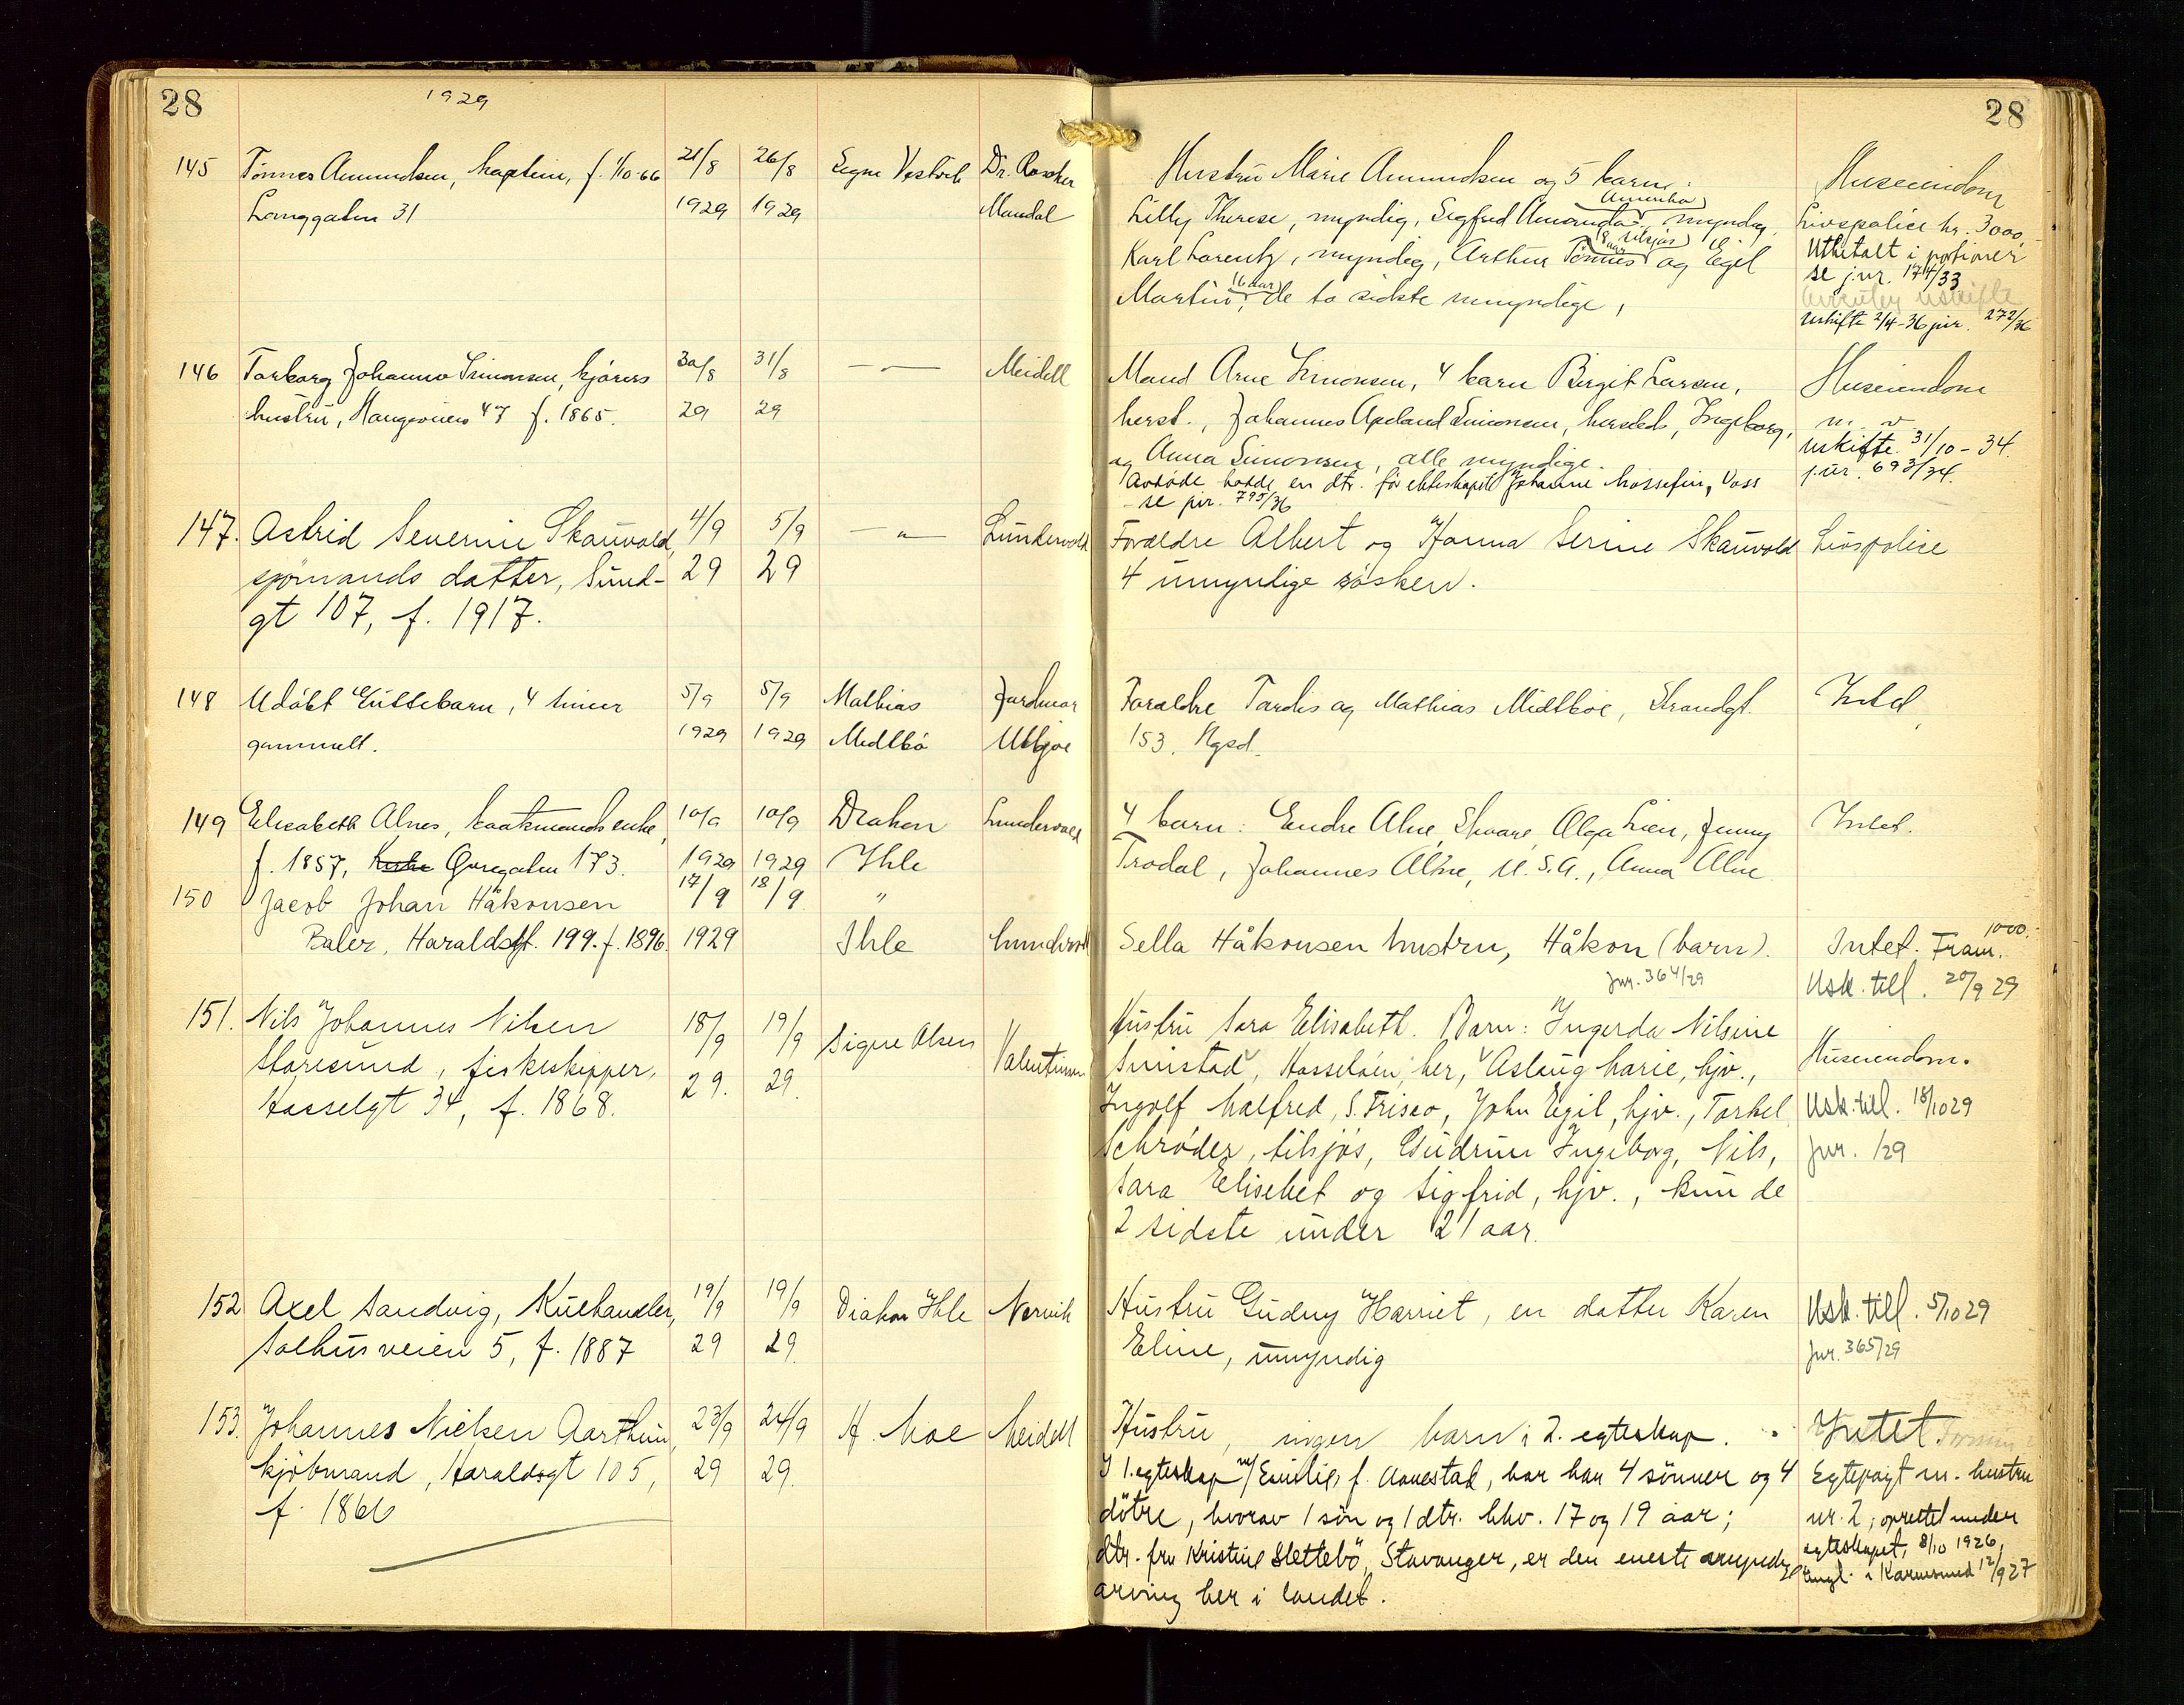 28
1929
145 Tönnes Amundsen, kaptein, f. 1/10-66 21/8 26/8 Signe Dr.
Langgaten 31 1929 1929 Mandal
146 Torborg Johanne Simonsen, kjörers 30/8 31/8 — " — Meidell
hustru, Haugeveien 47 f. 1865. 29 29
147. Astrid Severine Skauvold, 4/9 5/9 — " — Lundervold
sjömands datter, Sund- 29 29
gt 107, f. 1917.
148 Udöbt Guttebarn, 4 timer 5/9 5/9 Mathias Jordmor
gammelt. 1929 1929 Midtbö Utbjoe
149 Elisabeth Alnes, baatmands enke, 10/9 10/9 Diakon Lundervold
f. 1857, Öuregaten 173. 1929 1929 Ihle
150 Jacob Johan Håkonsen 17/9 18/9 "
Baler, Haraldsgt. 199. f. 1896. 1929 Ihle Lundervold
151. Nils Johannes Nilsen 18/9 19/9 Signe Olsen Valentinsen
Storesund, fiskeskipper, 29. 29.
Hasselgt 34, f. 1868.
152 Axel Sandvig, Kulhandler, 19/9 19/9 Diakon Ihle Nervik
Solhusveien 5, f. 1887 29 29.
153. Johannes Nielsen Aarthun, 23/9 24/9 H. Moe Meidell
kjöbmand, Haraldsgt 105, 29 29.
f. 1866
28
Hustru Marie Amundsen og 5 barn: Huseiendom
Amerika
Lilly Therese, myndig, Sigfred Amanda, myndig, Livspolice kr. 3000,-
tilsjös
Karl Lorentz, myndig, Arthur Tönnes og Egil Utbetalt i portioner
se jnr. 174/33
16 aar
Martin, de to sidste umyndige,
Uskifte 2/4-36 jnr. 272/36
Mand Arne Simonsen, 4 barn Birgit Larsen, Huseiendom
herst., Johannes Apeland Simonsen, hersteds, Ingeborg, m. v.
og Anna Simonsen, alle myndige. Uskifte 31/10-34.
Avdöde hadde en dtr. för ekteskapet Johanne Mossefin, Voss jnr. 693/34.
- se jnr. 795/36
Forældre Albert og Hanna Serine Skauvold Livspolise
4 umyndige sösken.
Forældre Tordis og Mathias Midtböe, Strandgt. Intet,
153, Hgsd.
4 barn: Endre Alne, Skaare, Olga Lien, Jenny Intet.
Trodal, Johannes Alne, U.S.A., Anna Alne
1000.-
Sella Håkonsen hustru, Håkon (barn). Intet. Fram.
Jnr. 364/29 Usk. till. 20/9 29
Hustru Sara Elisabeth. Barn: Ingerda Nilsine
Sunistad, Hasselöen, her, Aslaug Marie, hjv., Huseiendom.
Ingolf Malfred, S. Frisco, John Egil, hjv., Torkel Usk. till. 18/10 29
Schröder, tilsjös, Gudrun Ingeborg, Nils, Jnr. /29
Sara Elisebet og Sigfrid, hjv., kun de
2 sidste under 21 aar.
Hustru Gudny Harriet, en datter Karen Usk. till. 5/10 29
Eline, umyndig Jnr. 365/29
Hustru, ingen barn i 2. egteskap. Intet
I 1. egteskap m/ Emilie, f. Aanestad, har han 4 sönner og 4 Egtepagt m. hustru
dötre, hvorav 1 sön og 1 dtr. hhv. 17 og 19 aar; nr. 2, oprettet under
dtr. fru Kristine Slettebö, Stavanger, er den eneste myndige egteskapet, 8/10 1926,
tingl. i Karmsund 12/9 27
arving her i landet.